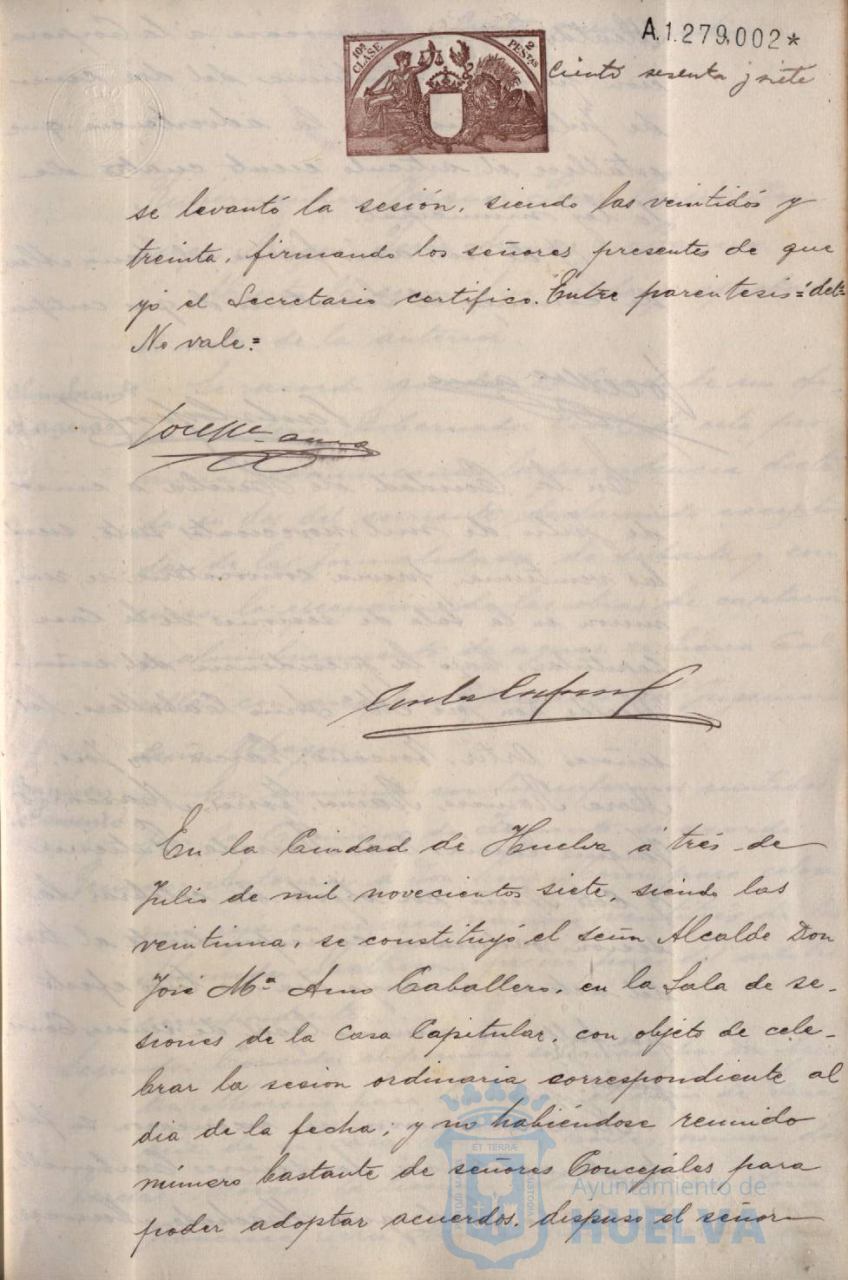 A.1.279.002*
10ª CLASE
2 PESTAS
Ciento sesenta y siete
se levantó la sesión, siendo las veintidós y
treinta, firmando los señores presentes de que
yo el Secretario certifico. Entre parentesis="del="
No vale=
En la Ciudad de Huelva á tres de
Julio de mil novecientos siete, siendo las
veintiuna, se constituyó el señor Alcalde Don
José Mª Amo Caballero, en la Sala de se-
siones de la Casa Capitular, con objeto de cele-
brar la sesion ordinaria correspondiente al
dia de la fecha; y no habiéndose reunido
número bastante de señores Concejáles para
poder adoptar acuerdos, dispuso el señor
Ayuntamiento de
HUELVA